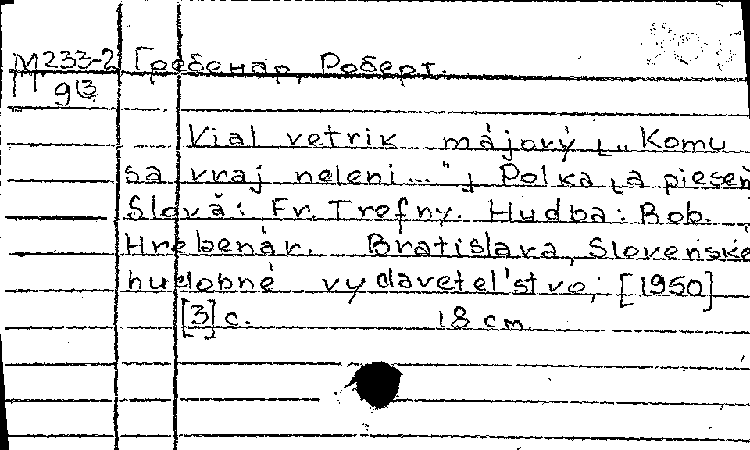 М 233-2 Гребенар, Роберт.
913
Vial vetrik májový [„Komu
sa vraj neleni..."] Polka [a pieseň
Slová: Fr. Trefny. Hudba: Rob.
Hrebenár. Bratislava, Slovenské
hudobné vydavatel'stvo, [1950]
[3] с. 18 см